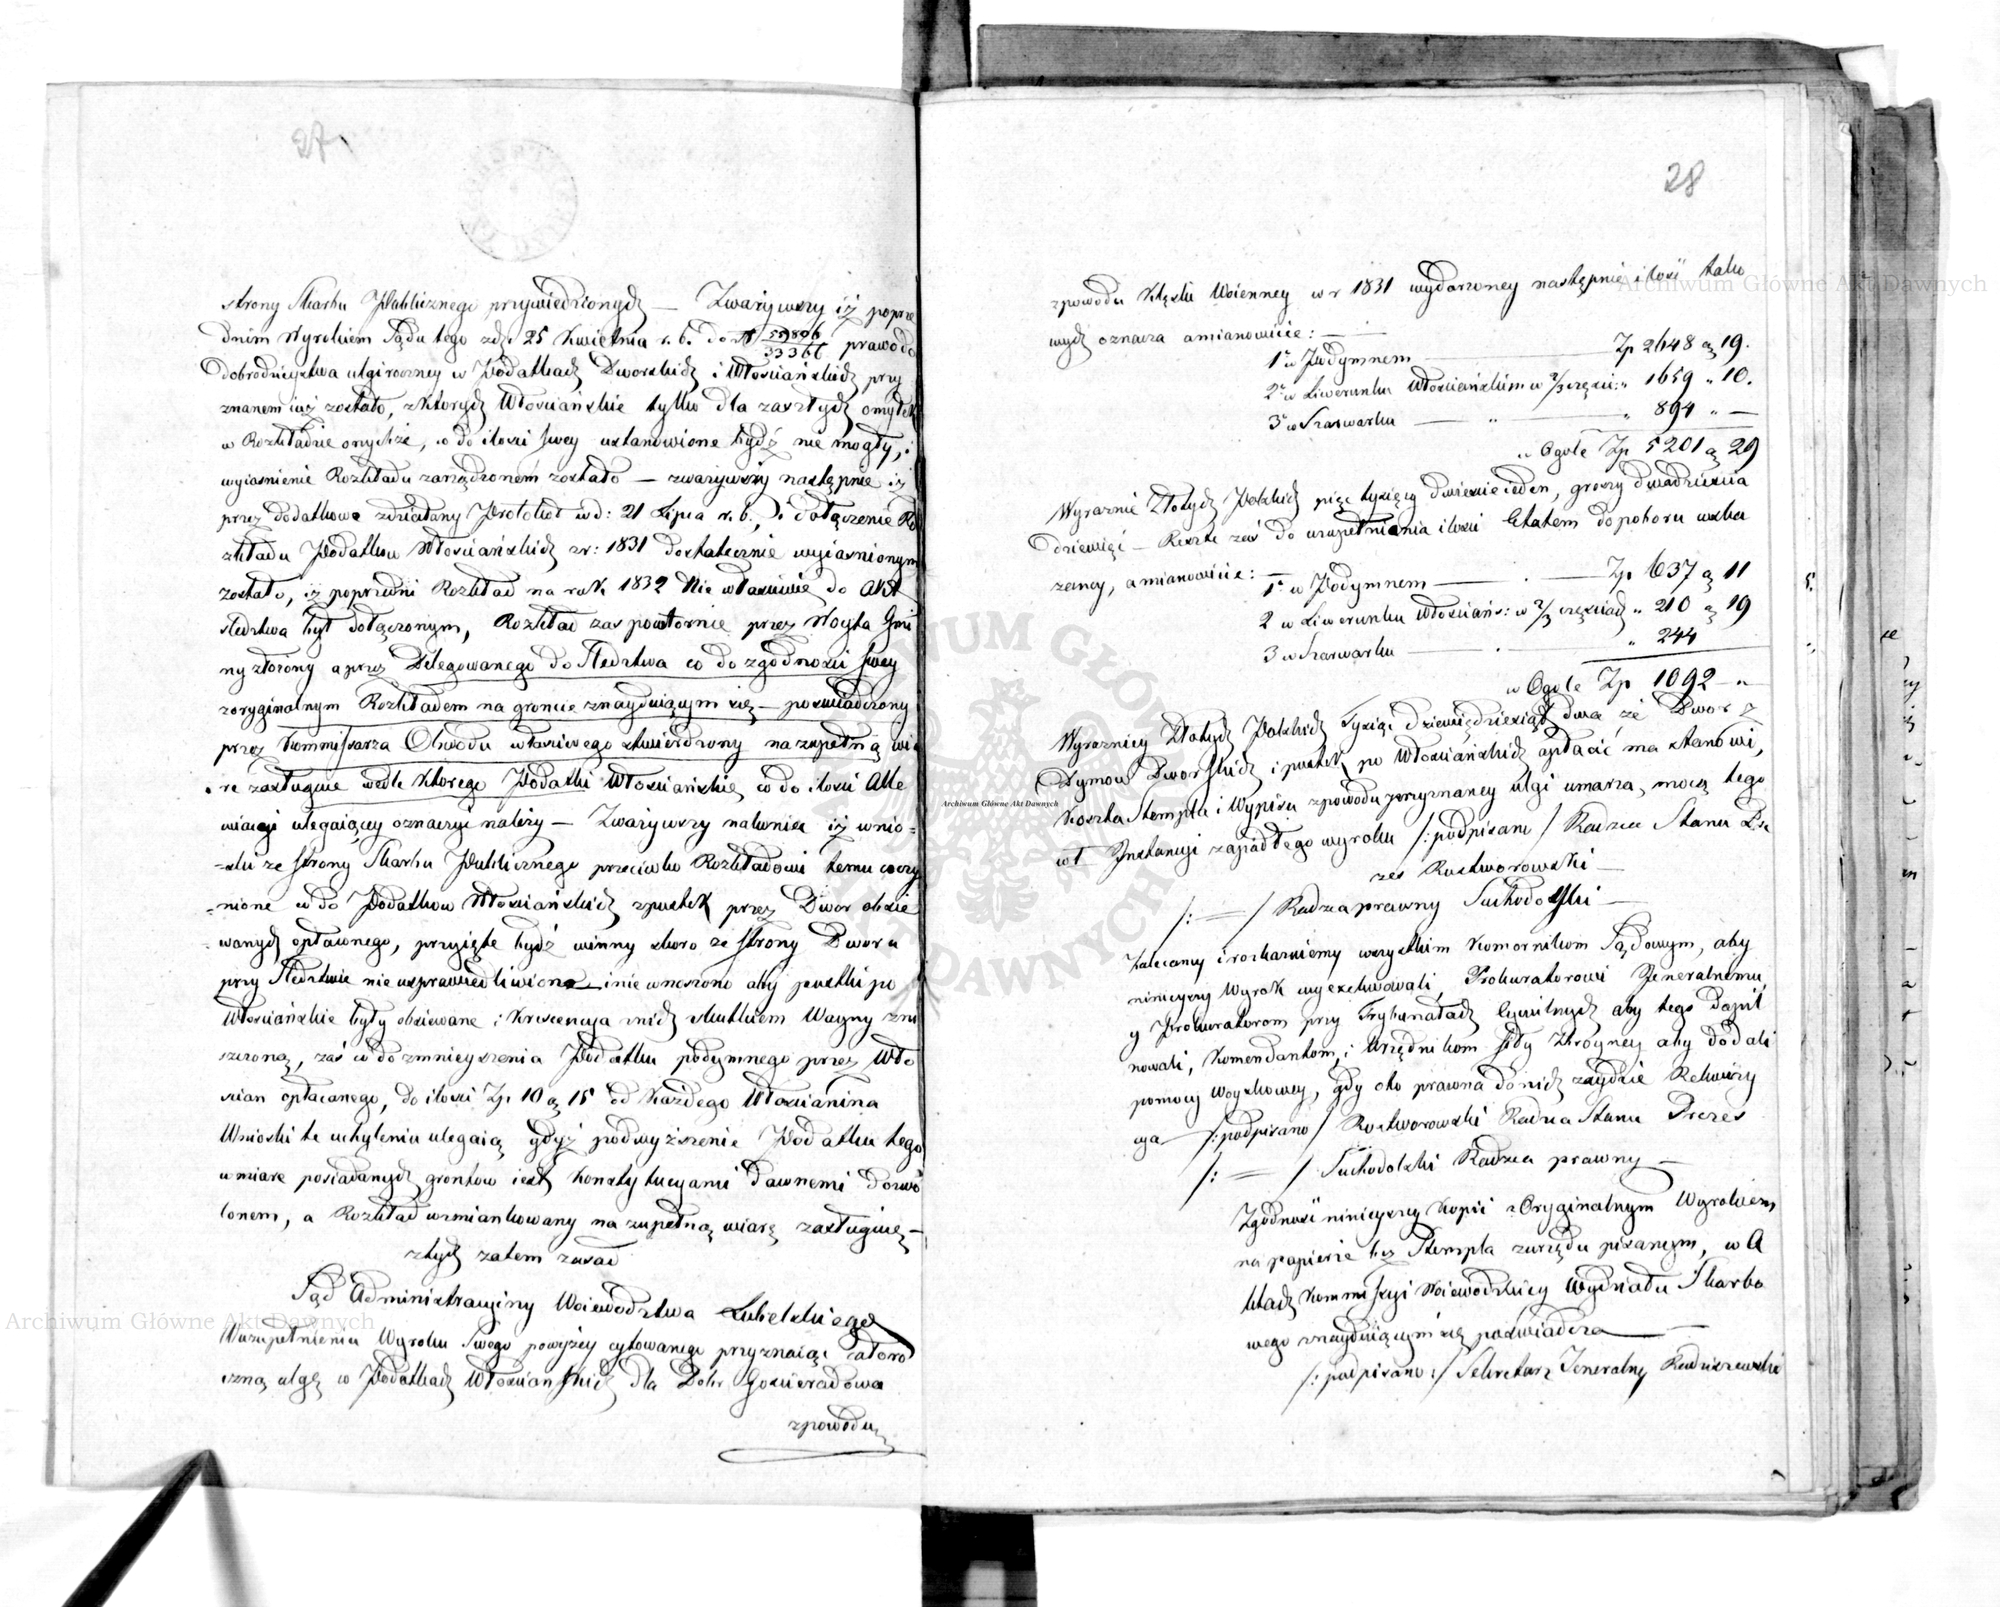 27
strony Skarbu Publicznego przywiedzionych — Zwazywszy iż poprze
dnim Wyrokiem Sądu tego z d. 25 Kwietnia r. b. do N 59806/33366 prawo do
dobrodzieystwa ulgi roczney w Podatkach Dworskich i Włosciańskich przy
znanem iuż zostało, z ktorych Włosciańskie tylko dla zaszłych omyłek
w Rozkładzie onychże, co do ilosci swey ustanowione bydź nie mogły, i
wyiasnienie Rozkładu zarządzonem zostało — zwazywszy następnie iż
przez dodatkowe zdziałany Protokoł w d: 21 Lipca r. b., i dołączenie Ro
zkładu Podatku Włosciańskich z r: 1831 dostatecznie wyiasnionym
zostało, iż poprzedni Rozkład na rok 1832 Nie własciwie do Akt
sledztwa był dołączonym, Rozkład zas powtornie przez Woyta Gmi
ny złożony a przez Delegowanego do Sledztwa co do zgodnosci swey
z oryginalnym Rozkładem na groncie znayduiącym się — poswiadczony
przez Kommissarza Obwodu własciwego stwierdzony na zupełną wia
re zasługuie wedle ktorego Podatki Włosciańskie, co do ilosci Alle
wiacyi ulegaiącey oznaczyć należy — Zwazywszy nakoniec iż wnio=
=ski ze strony Skarbu Publicznego przeciwko Rozkładowi temu uczy
=nione co do Podatkow Włosciańskich z pustek przez Dwor obsie
wanych opłaconego, przyięte bydź winny skoro ze strony Dworu
przy Sledztwie nie usprawiedliwiono i nie wnoszono aby pustki po
Włosciańskie były obsiewane i Krescencya z nich skutkiem Woyny zni
szczoną, zaś co do zmnieyszenia Podatku podymnego przez Wło
scian opłacanego, do ilosci Zp. 10 g 15 od każdego Włoscianina
Wnioski te uchyleniu ulegaią gdyż podwyższenie Podatku tego
w miare posiadanych grontow iest Konstytucyami dawnemi dozwo
lonem, a Rozkład wzmiankowany na zupełną wiarę zasługuie —
z tych zatem zasad
Sąd Administracyiny Woiewodztwa Lubelskiego
W uzupełnieniu Wyroku Swego powyżey cytowanego przyznaiąc całoro
czną ulgę w Podatkach Włosciańskich dla Dobr Goscieradowa
z powodu
28
z powodu Klęski Woienney w r 1831 wydarzoney następnie ilosć tako
wych oznacza a mianowicie: —
1° w Podymnem — Zp 2648 g 19.
2° w Liwerunku Włosciańskim w 2/3 częsci: " 1659 " 10.
3° w Szarwarku — " 894 " —
w Ogole Zp 5201 g 29
Wyraznie Złotych Polskich pięc tysięcy dwiescie ieden, groszy dwadziescia
dziewięć — Resztę zaś do uzupełnienia ilosci Etatem do poboru wska
zaney, a mianowicie: —
1° w Podymnem — Zp. 637 g 11
2 w Liwerunku Włosciańs: w 2/3 częsciach " 210 g 19
3 w Szarwarku — " 244
w Ogole Zp 1092 — "
Wyrazniey Złotych Polskich Tysiąc dziewięćdziesiąt dwa że Dwor z
Dymow Dworskich i pustek po Włosciańskich opłacić ma stanowi,
Koszta Stempla i Wypisu z powodu przyznaney ulgi umarza, mocą tego
w I Instancyi zapadłego wyroku /:podpisano/ Radzca Stanu Pre
zes Rostworowski —
/: = / Radzca prawny Suchodolski —
Zalecamy i rozkazuiemy wszystkim Komornikom Sądowym, aby
ninieyszy Wyrok wyexekwowali, Prokuratorowi Jeneralnemu
y Prokuratorom przy Trybunałach Cywilnych aby tego dopil
nowali, Komendantom i Urzędnikom siły zbroyney aby dodali
pomocy woyskowey, gdy oto prawnie do nich zaydzie Rekwizy
cya — /:podpisano/ Rostworowski Radzca Stanu Prezes
/: = / Suchodolski Radzca prawny —
Zgodnosć ninieyszey Kopii z Oryginalnym Wyrokiem
na papierze bez Stempla z urzędu pisanym, w A
ktach Kommissyi Woiewodzkiey Wydziału Skarbo
wego znayduiącym się poswiadcza —
/: podpisano :/ Sekretarz Jeneralny Radziszewski
Archiwum Główne Akt Dawnych
Archiwum Główne Akt Dawnych
Archiwum Główne Akt Dawnych
ARCHIWUM GŁÓWNE AKT DAWNYCH